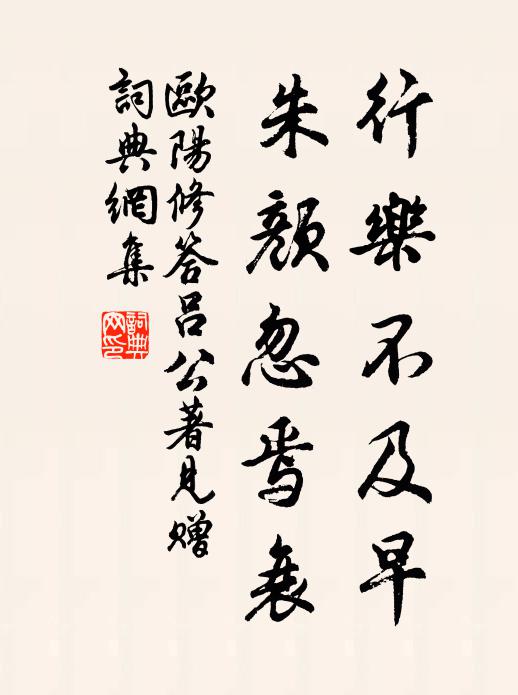 行樂不及早
朱顏忽焉衰
歐陽修答呂公著見贈
詞典網集
詞典网印